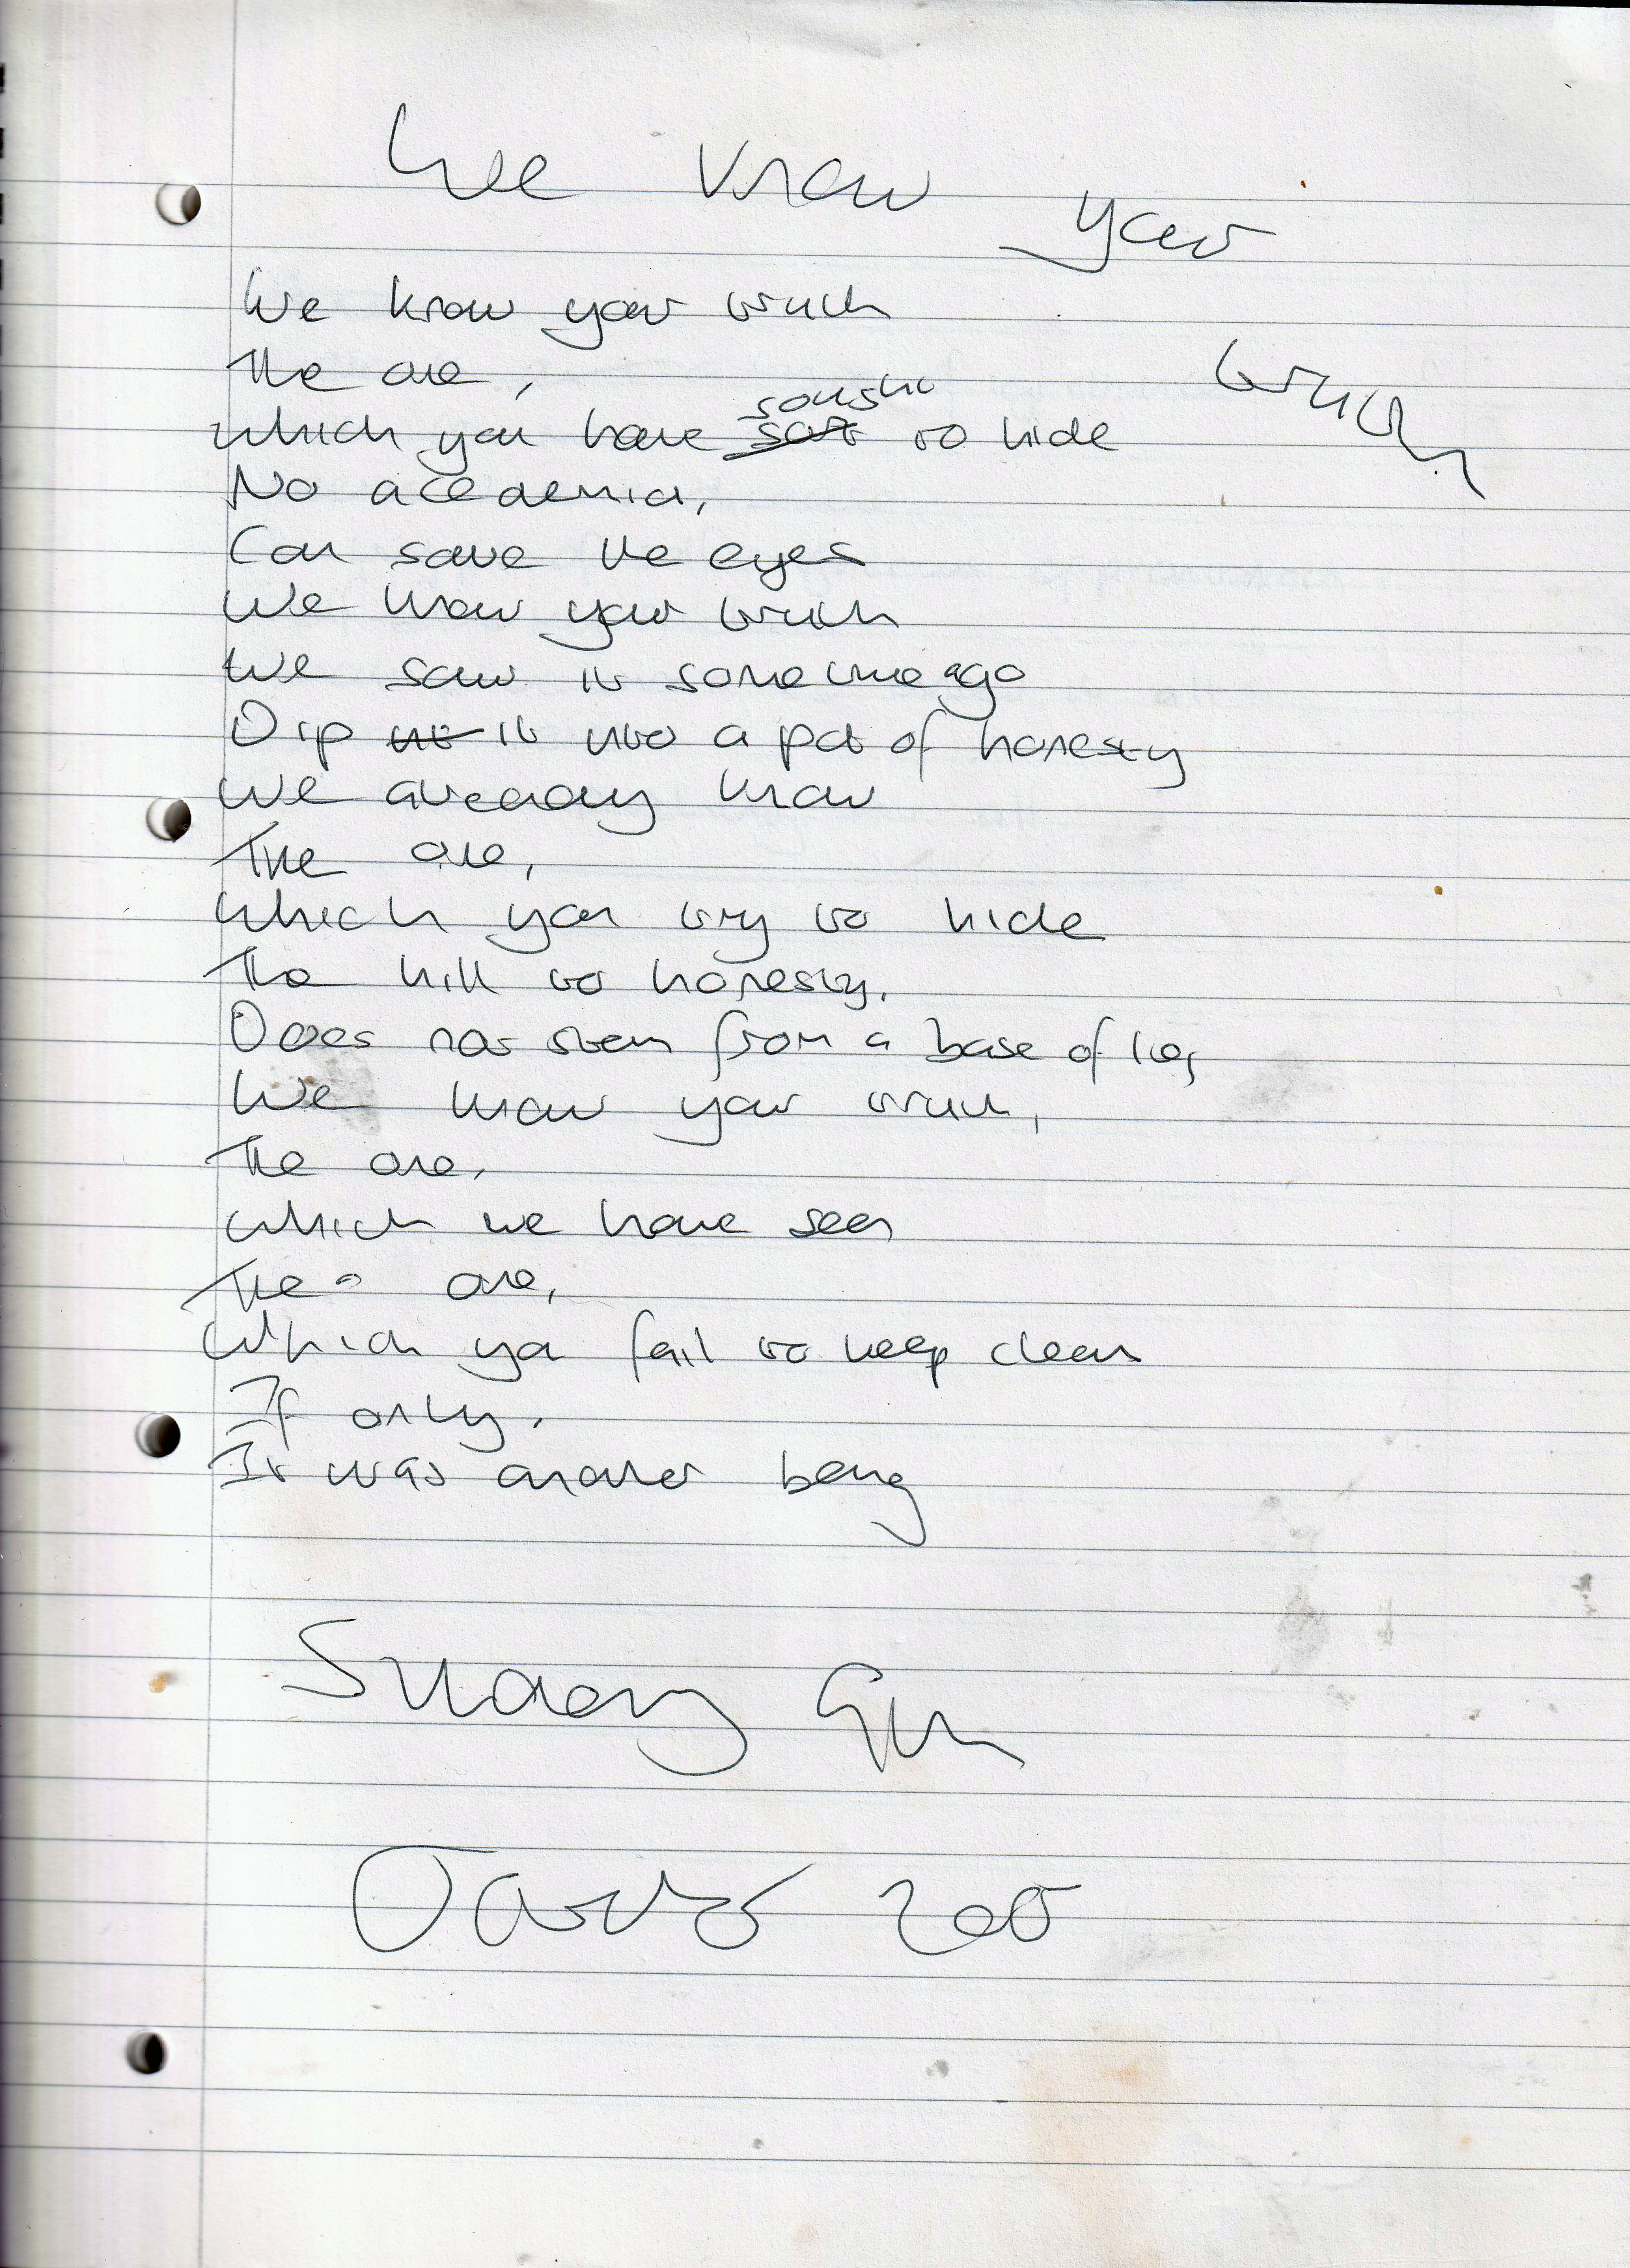 We know your
truth
We know your truth
The one,
which you have sought to hide
No academia,
Can save the eyes
We know your truth
We saw it sometime ago
Dip it into a pot of honesty
We already know
The one,
which you try to hide
The hill to honesty,
Does not stem from a base of lies
We know your truth,
The one,
which we have seen
The one,
Which you fail to keep clean
If only,
It was another being